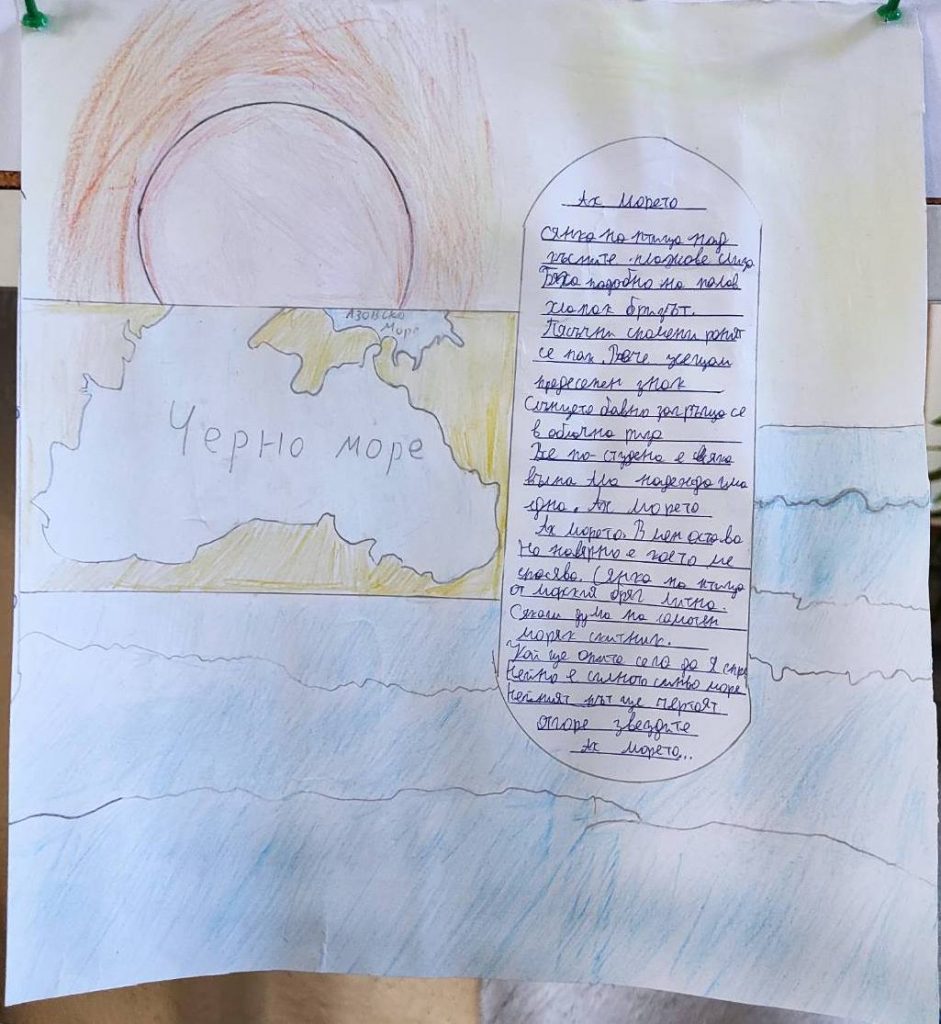 Азовско
Море
Черно море
Ах морето
Сянка на птица над
късните плажове слиза
Тъжно подобно на полъх
хлопак бризът.
Пясъчни спомени ронят
се пак. Вече усещам
предесенен знак
Слънцето бавно загръща се
в облачна риза
Все по-студена е всяка
вълна Ма надежда има
една. Ах морето
Ах морето. В мен остава
На навярно е което ме
спасява. Сянка на птица
от морския бряг литна.
Сякаш дума на самотен
моряк скитник.
Кой ще опита сега да я спре
Нейно е силното синьо море
Нейният път ще чертаят
отгоре звездите
Ах морето...